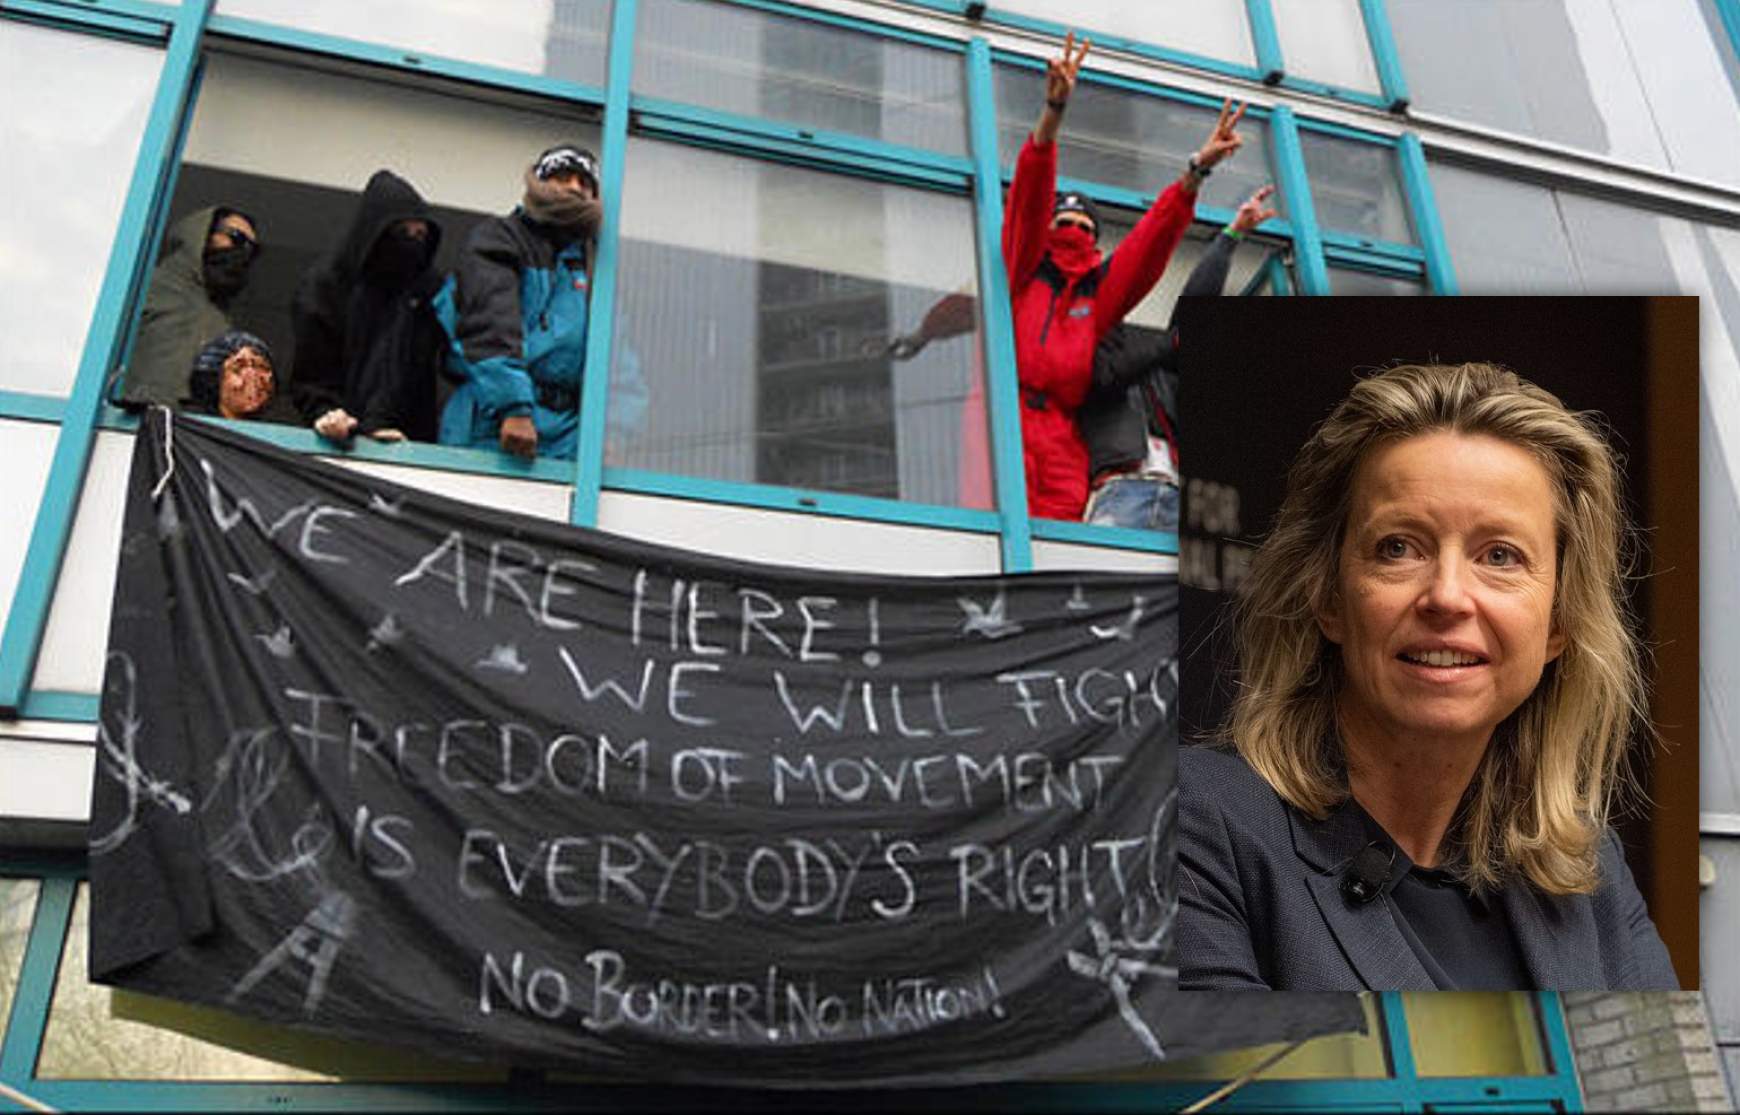 WE ARE HERE!
WE WILL FIGH
FREEDOM OF MOVEMENT
IS EVERYBODY'S RIGHT!
NO BORDER! NO NATION!
A
FOR